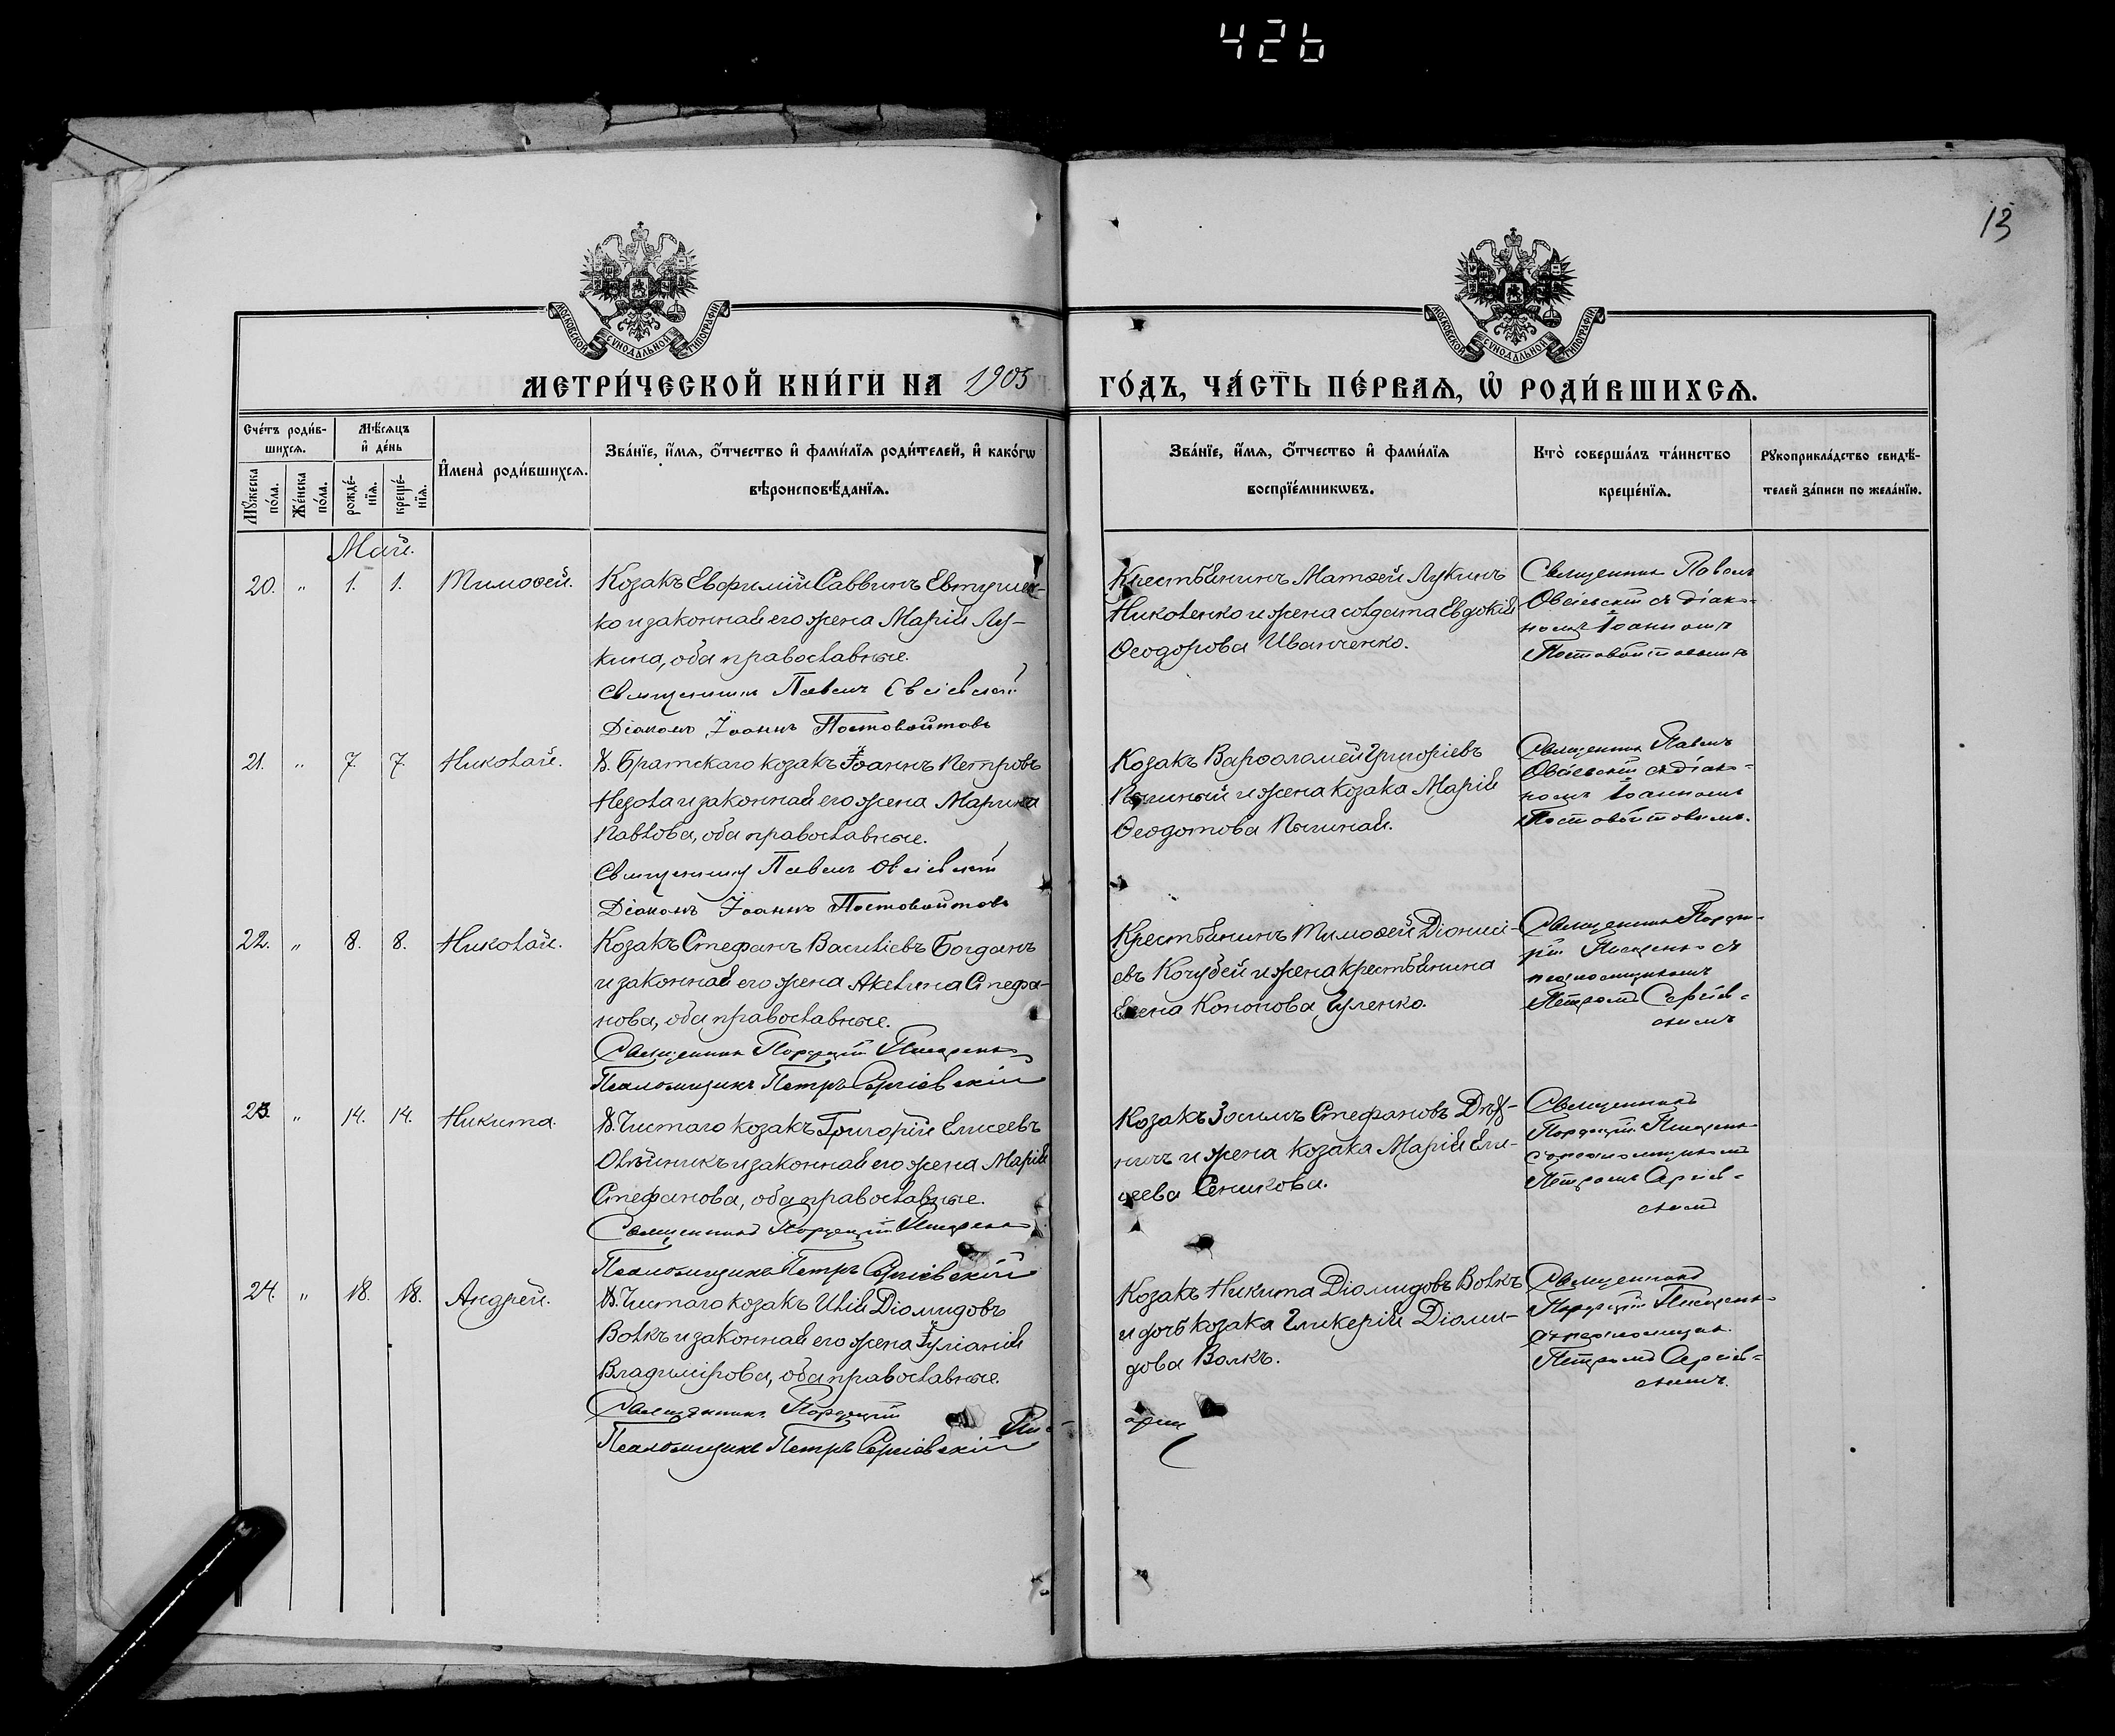 426
13
МОСКОВСКОЙ СѴНОДАЛЬНОЙ ТИПОГРАФІИ
МОСКОВСКОЙ СѴНОДАЛЬНОЙ ТИПОГРАФІИ
МЕТРИ́ЧЕСКОЙ КНИ́ГИ НА 1905 ГО́ДЪ, ЧА́СТЬ ПЕ́РВАѦ, Ѡ҆ РОДИ́ВШИХСѦ.
Сче́тъ роди́в-
шихсѧ.
Мꙋ́жеска по́ла.
Же́нска по́ла.
Мѣ́сѧцъ
и҆ де́нь
рожде́-
нїѧ.
креще́-
нїѧ.
И҆мена̀ роди́вшихсѧ.
Зва́нїе, и҆́мѧ, ѻ҆́тчество и҆ фами́лїѧ роди́телей, и҆ како́гѡ
вѣроисповѣ́данїѧ.
Зва́нїе, и҆́мѧ, ѻ҆́тчество и҆ фами́лїѧ
воспрїе́мникѡвъ.
Кто̀ соверша́лъ та́инство
креще́нїѧ.
Рꙋкоприкла́дство свидѣ́-
телей за́писи по жела́нїю.
Май.
20. " 1. 1. Тимоѳей.
Козакъ Евфимій Саввинъ Евтушен-
ко и законная его жена Марія Лу-
кина, оба православные.
Священникъ Павелъ Овсіевскій
Діаконъ Іоаннъ Постовойтовъ
Крестьянинъ Матѳей Лукинъ
Николенко и жена солдата Евдокія
Ѳеодорова Иванченко.
Священникъ Павелъ
Овсіевскій съ діако-
номъ Іоанномъ
Постовойтовымъ
21. " 7. 7. Николай.
Х. Братскаго козакъ Іоаннъ Петровъ
Недола и законная его жена Марина
Павлова, оба православные.
Священникъ Павелъ Овсіевскій
Діаконъ Іоаннъ Постовойтовъ
Козакъ Варѳоломей Григоріевъ
и жена козака Марія
Ѳеодотова
Священникъ Павелъ
Овсіевскій съ діако-
номъ Іоанномъ
Постовойтовымъ.
22. " 8. 8. Николай.
Козакъ Стефанъ Василіевъ Богданъ
и законная его жена Акелина Стефа-
нова, оба православные.
Священникъ Порфирій Писаренко
Псаломщикъ Петръ Сергіевскій
Крестьянинъ Тимоѳей Діонисі-
евъ Кочубей и жена крестьянина
Елена Кононова Гуленко.
Священникъ Порфи-
рій Писаренко съ
псаломщикомъ
Петромъ Сергіев-
скимъ
23. " 14. 14. Никита.
Х. Чистаго козакъ Григорій Елисеевъ
Олѣйникъ и законная его жена Марія
Стефанова, оба православные.
Священникъ Порфирій Писаренко
Псаломщикъ Петръ Сергіевскій
Козакъ Зосимъ Стефановъ
и жена козака Марія Ели-
сеева Сеникова.
Священникъ
Порфирій Писаренко
съ псаломщикомъ
Петромъ Сергіев-
скимъ
24. " 18. 18. Андрей.
Х. Чистаго козакъ Илія Діомидовъ
Волкъ и законная его жена Іуліанія
Владимірова, оба православные.
Священникъ Порфирій Писаренко
Псаломщикъ Петръ Сергіевскій
Козакъ Никита Діомидовъ Волкъ
и дочь козака Гликерія Діоми-
дова Волкъ.
Священникъ
Порфирій Писаренко
съ псаломщик.
Петромъ Сергіев-
скимъ.